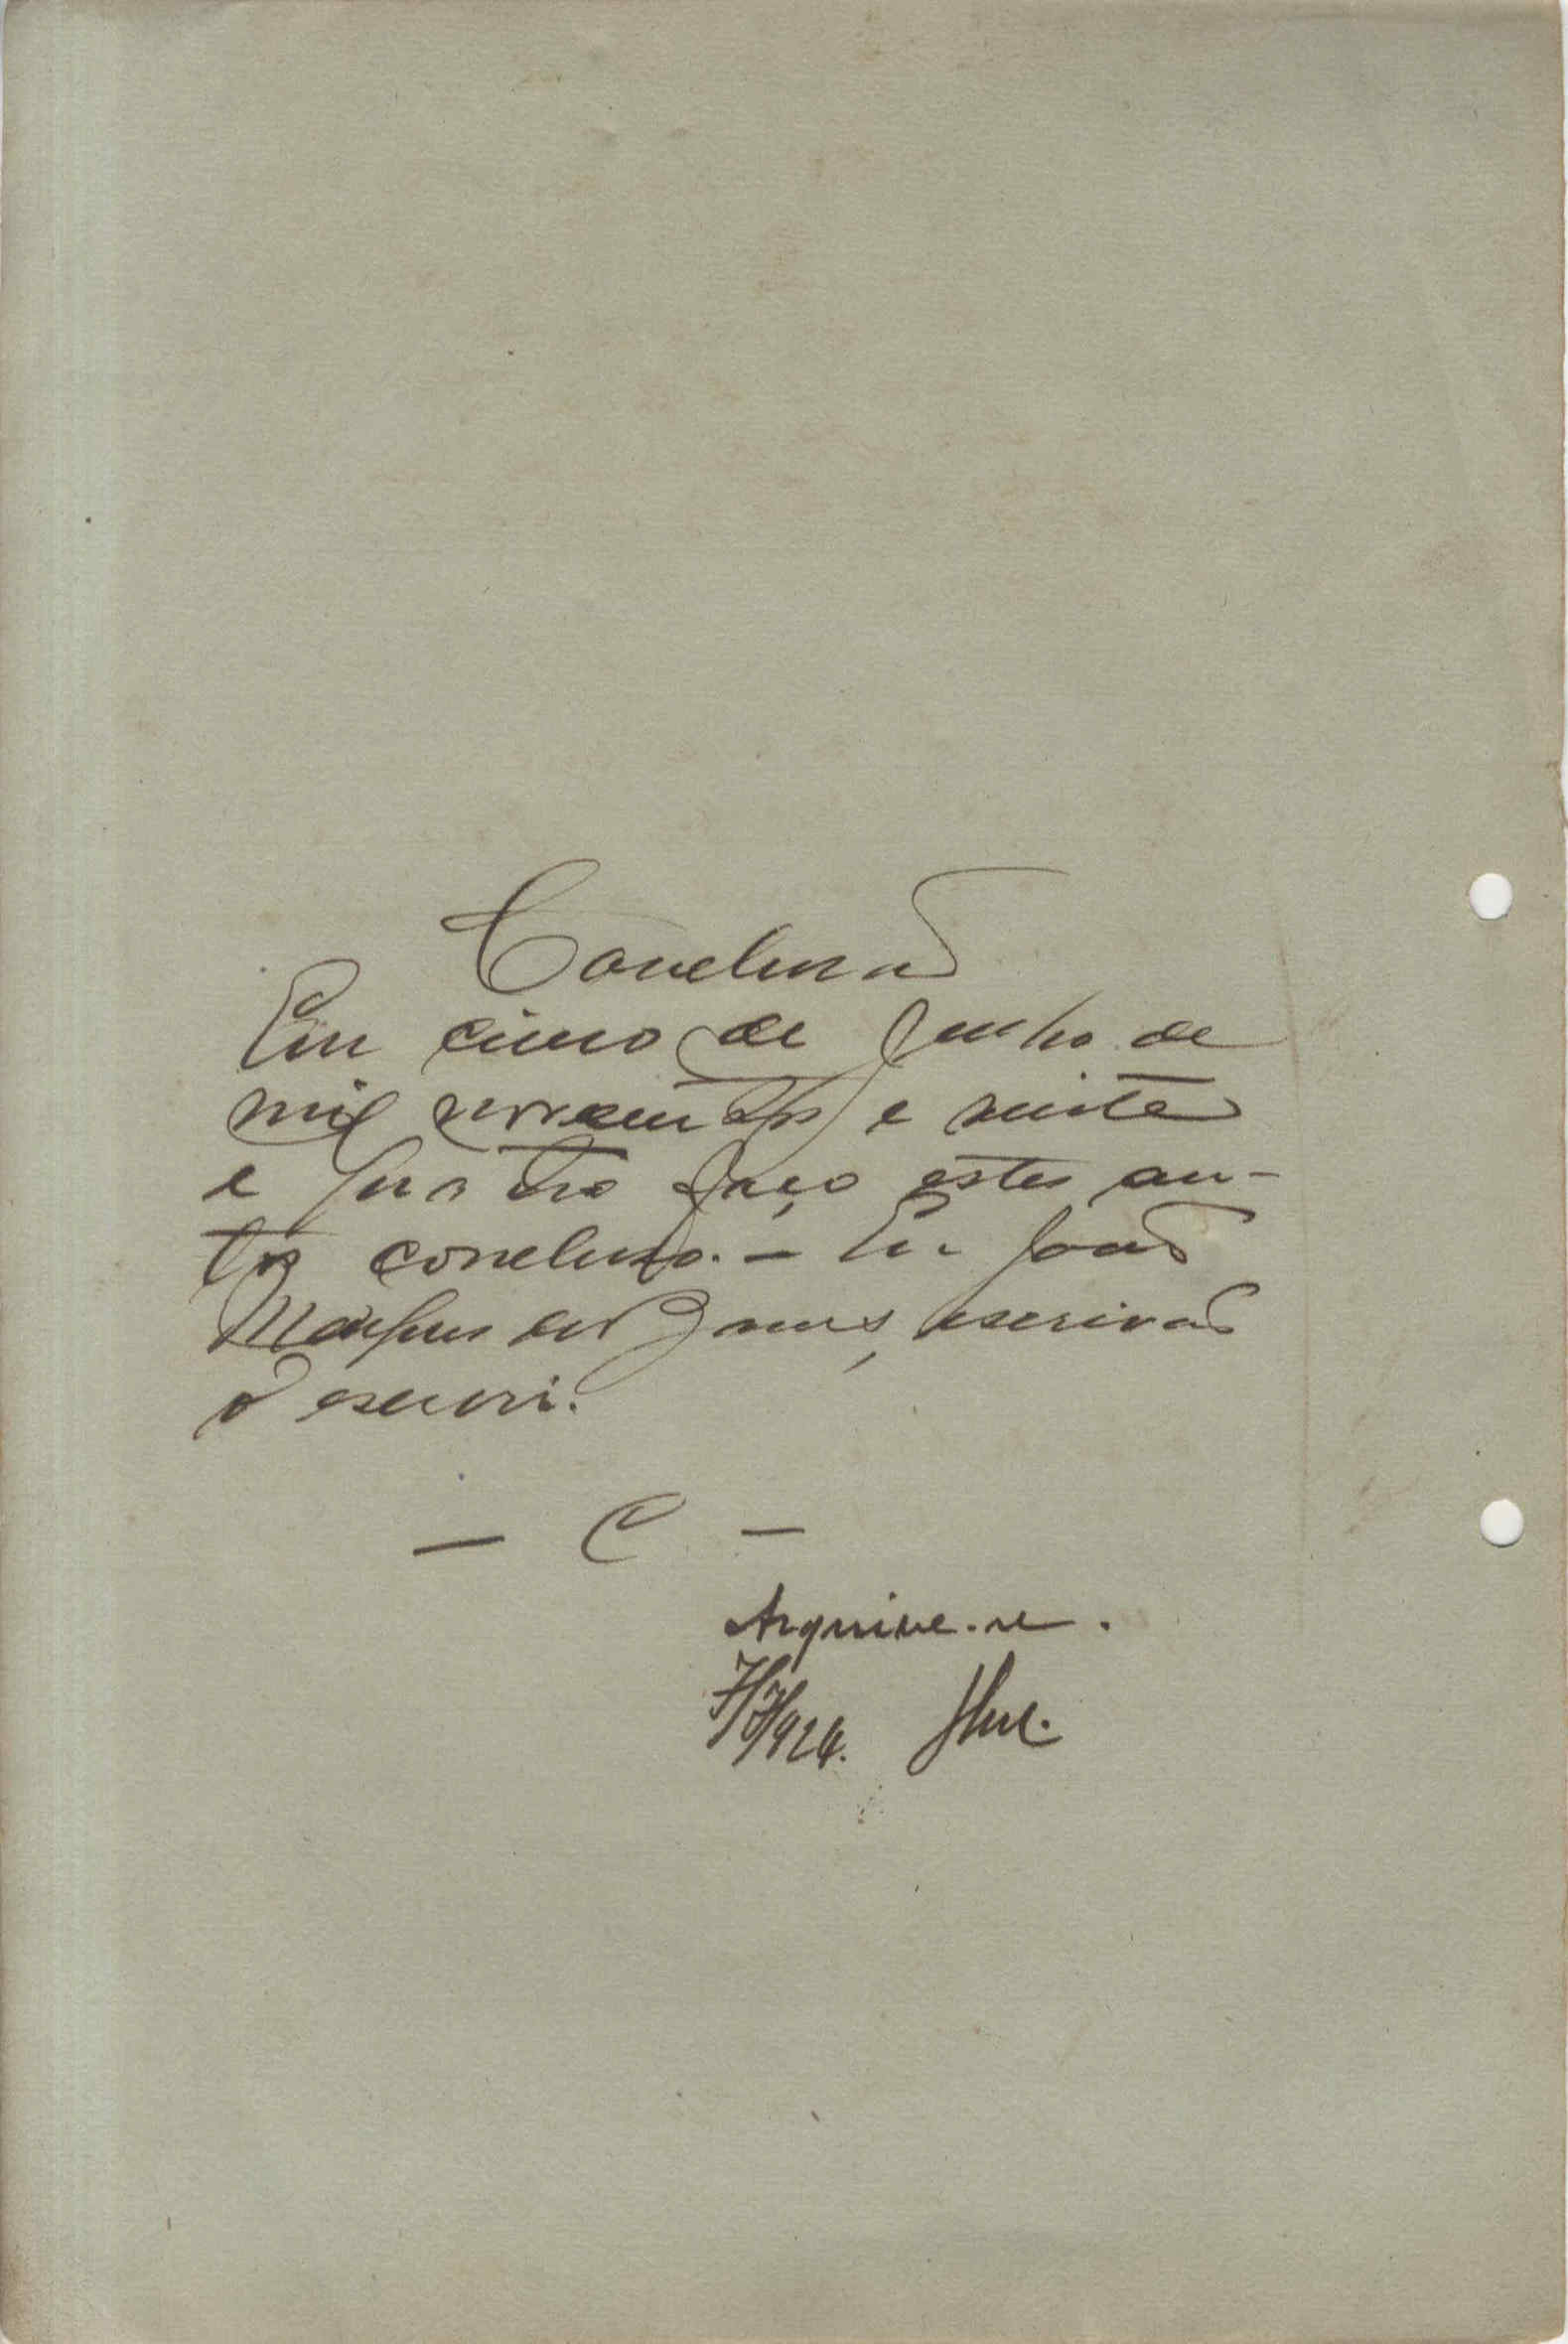 Conclusão
Em cinco de Junho de
mil novecentos e vinte
e quatro faço estes au-
tos concluso. — Eu João
Marques dos escrivão
o escrevi.
— C —
Arquive-se.
7/7/924.